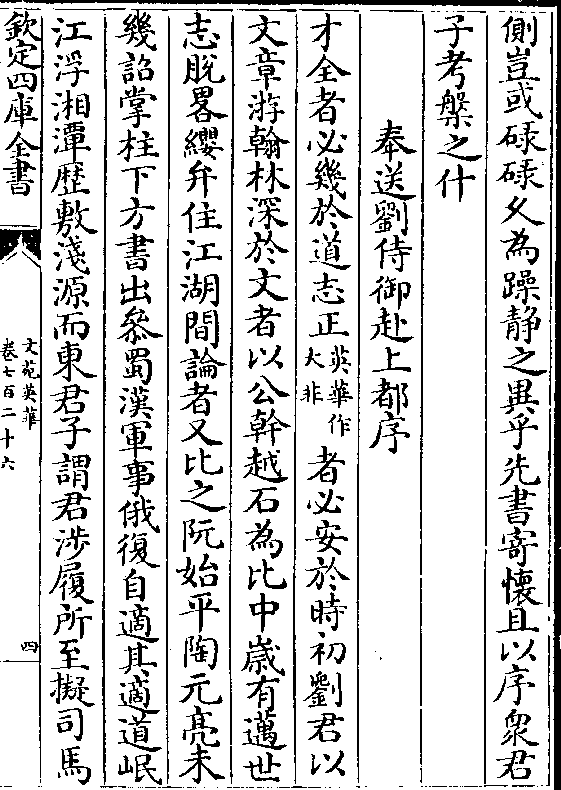 側豈或碌碌久為躁静之異乎先書寄懷且以序衆君
子考槃之什
奉送劉侍御赴上都序
才全者必幾於道志正英華作大非者必安於時初劉君以
文章游翰林深於文者以公幹越石為比中嵗有邁世
志脱畧纓弁住江湖間論者又比之阮始平陶元亮未
幾詔掌柱下方書出叅蜀漢軍事俄復自適其適道岷
江浮湘潭歴敷淺源而東君子謂君涉履所至擬司馬
欽定四庫全書
文苑英華
卷七百二十六
四